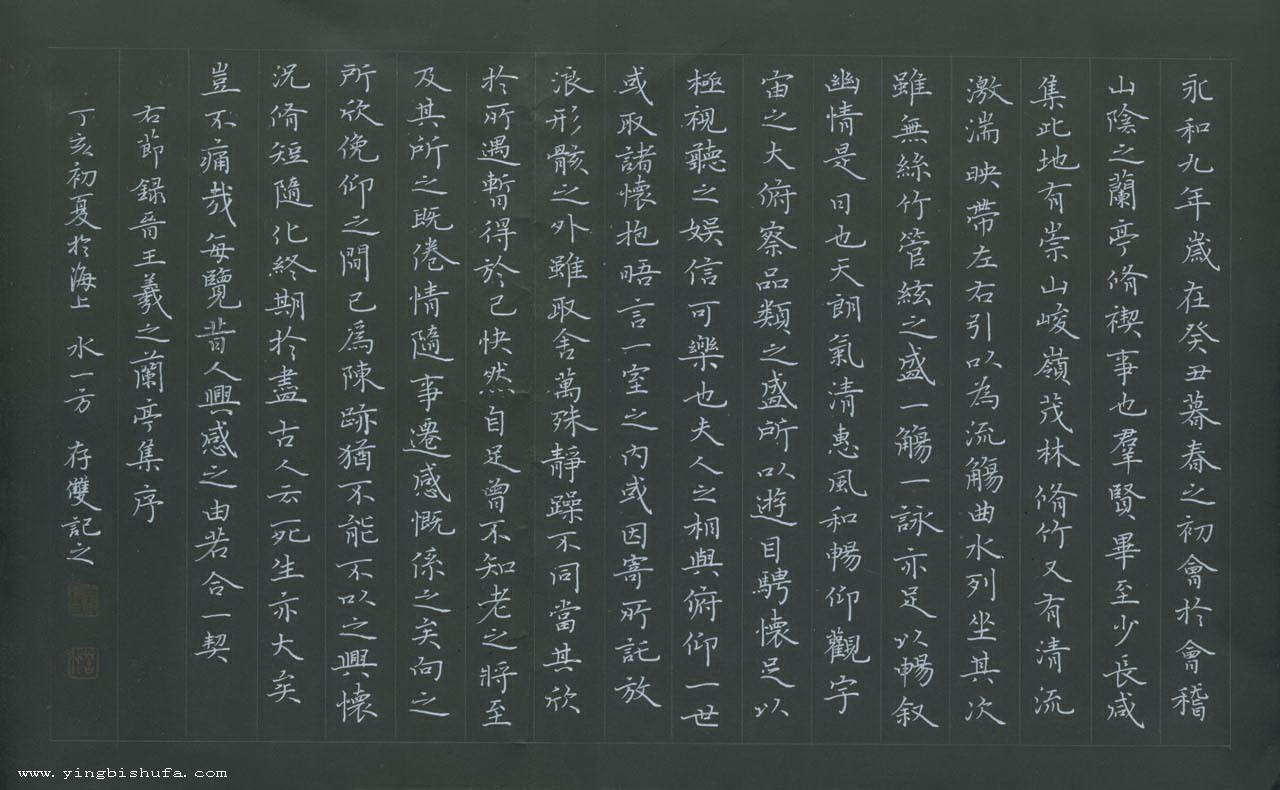 永和九年歲在癸丑暮春之初會於會稽
山陰之蘭亭脩禊事也羣賢畢至少長咸
集此地有崇山峻嶺茂林脩竹又有清流
激湍映帶左右引以為流觴曲水列坐其次
雖無絲竹管絃之盛一觴一詠亦足以暢叙
幽情是日也天朗氣清惠風和暢仰觀宇
宙之大俯察品類之盛所以遊目騁懷足以
極視聽之娛信可樂也夫人之相與俯仰一世
或取諸懷抱晤言一室之內或因寄所託放
浪形骸之外雖取舍萬殊靜躁不同當其欣
於所遇暫得於己快然自足曾不知老之將至
及其所之既倦情隨事遷感慨係之矣向之
所欣俛仰之間已為陳跡猶不能不以之興懷
況脩短隨化終期於盡古人云死生亦大矣
豈不痛哉每覽昔人興感之由若合一契
右節錄晉王羲之蘭亭集序
丁亥初夏於海上 水一方 存雙記之
www.yingbishufa.com